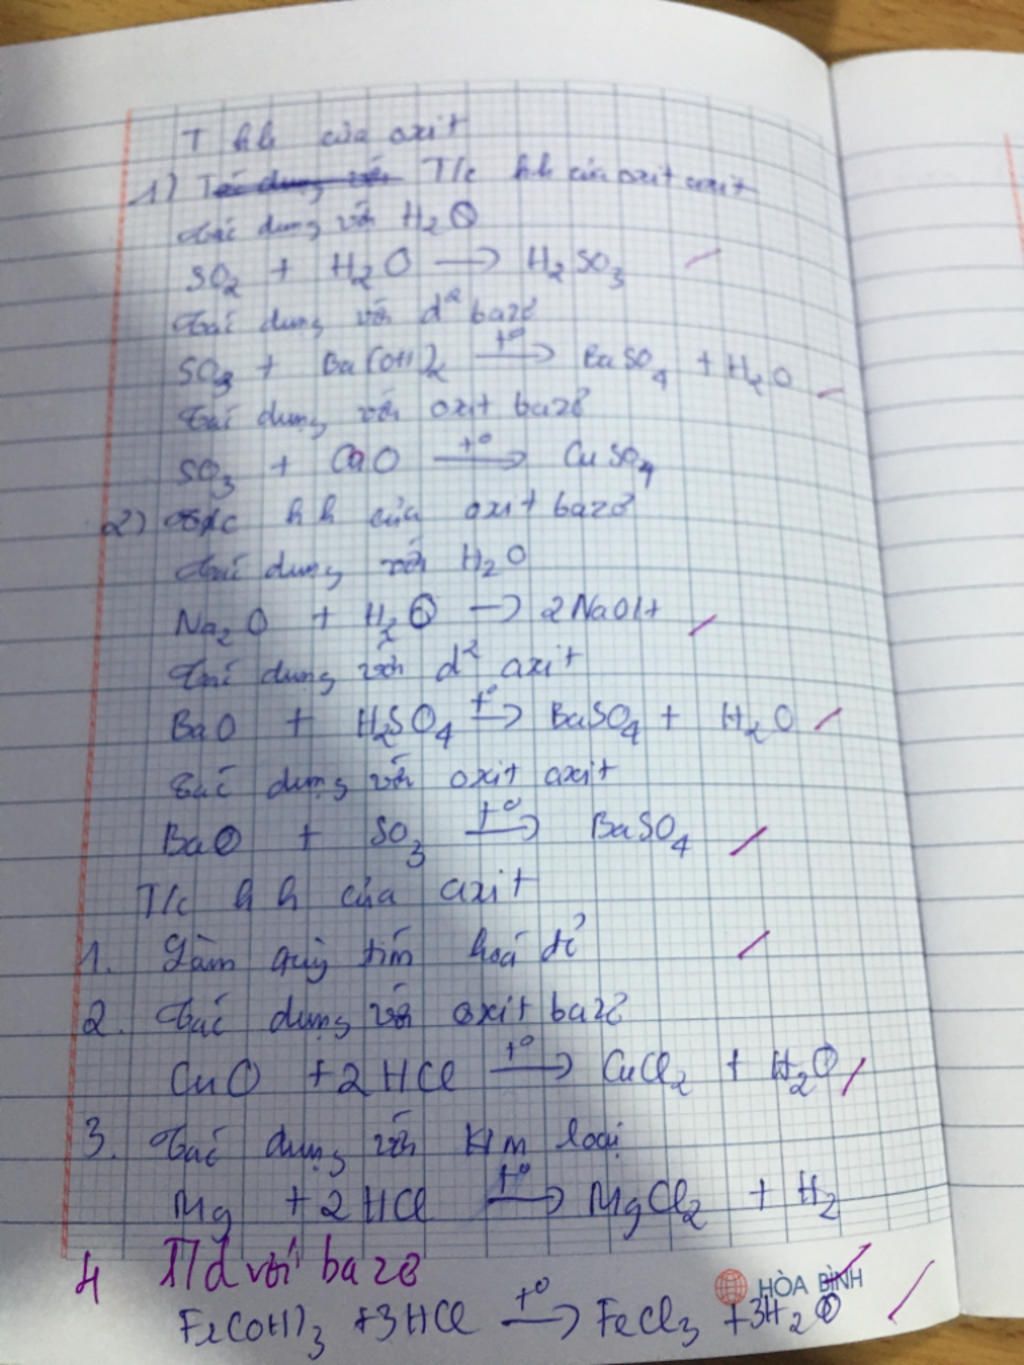 T hh của oxit
1) Tác dung với T/c hh của oxit axit
Tác dung với H2O
SO2 + H2O → H2SO3
Tác dung với d² bazơ
SO3 + Ba(OH)2 t° → BaSO4 + H2O
Tác dung với oxit bazơ
SO3 + CaO t° → CuSO4
2) T/c hh của oxit bazơ
Tác dung với H2O
Na2O + H2O → 2NaOH
Tác dung với d² axit
BaO + H2SO4 t° → BaSO4 + H2O
Tác dụng với oxit axit
BaO + SO3 t° → BaSO4
T/c hh của axit
1. Làm quỳ tím hoá đỏ
2. Tác dụng với oxit bazơ
CuO + 2HCl t° → CuCl2 + H2O
3. Tác dụng với kim loại
Mg + 2HCl t° → MgCl2 + H2
4 T/d với bazơ
HÒA BÌNH
Fe(OH)3 + 3HCl t° → FeCl3 + 3H2O